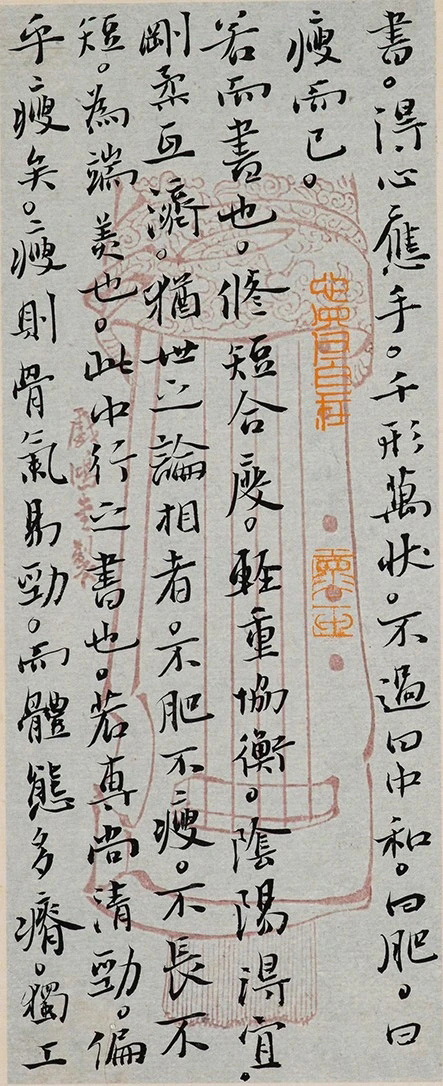 書。得心應手。千形萬狀。不過曰中和。曰肥。曰
瘦而已。
若而書也。修短合度。輕重協衡。陰陽得宜。
剛柔互濟。猶世之論相者。不肥不瘦。不長不
短。為端美也。此中行之書也。若專尚清勁。偏
乎瘦矣。瘦則骨氣易勁。而體態多瘠。獨工